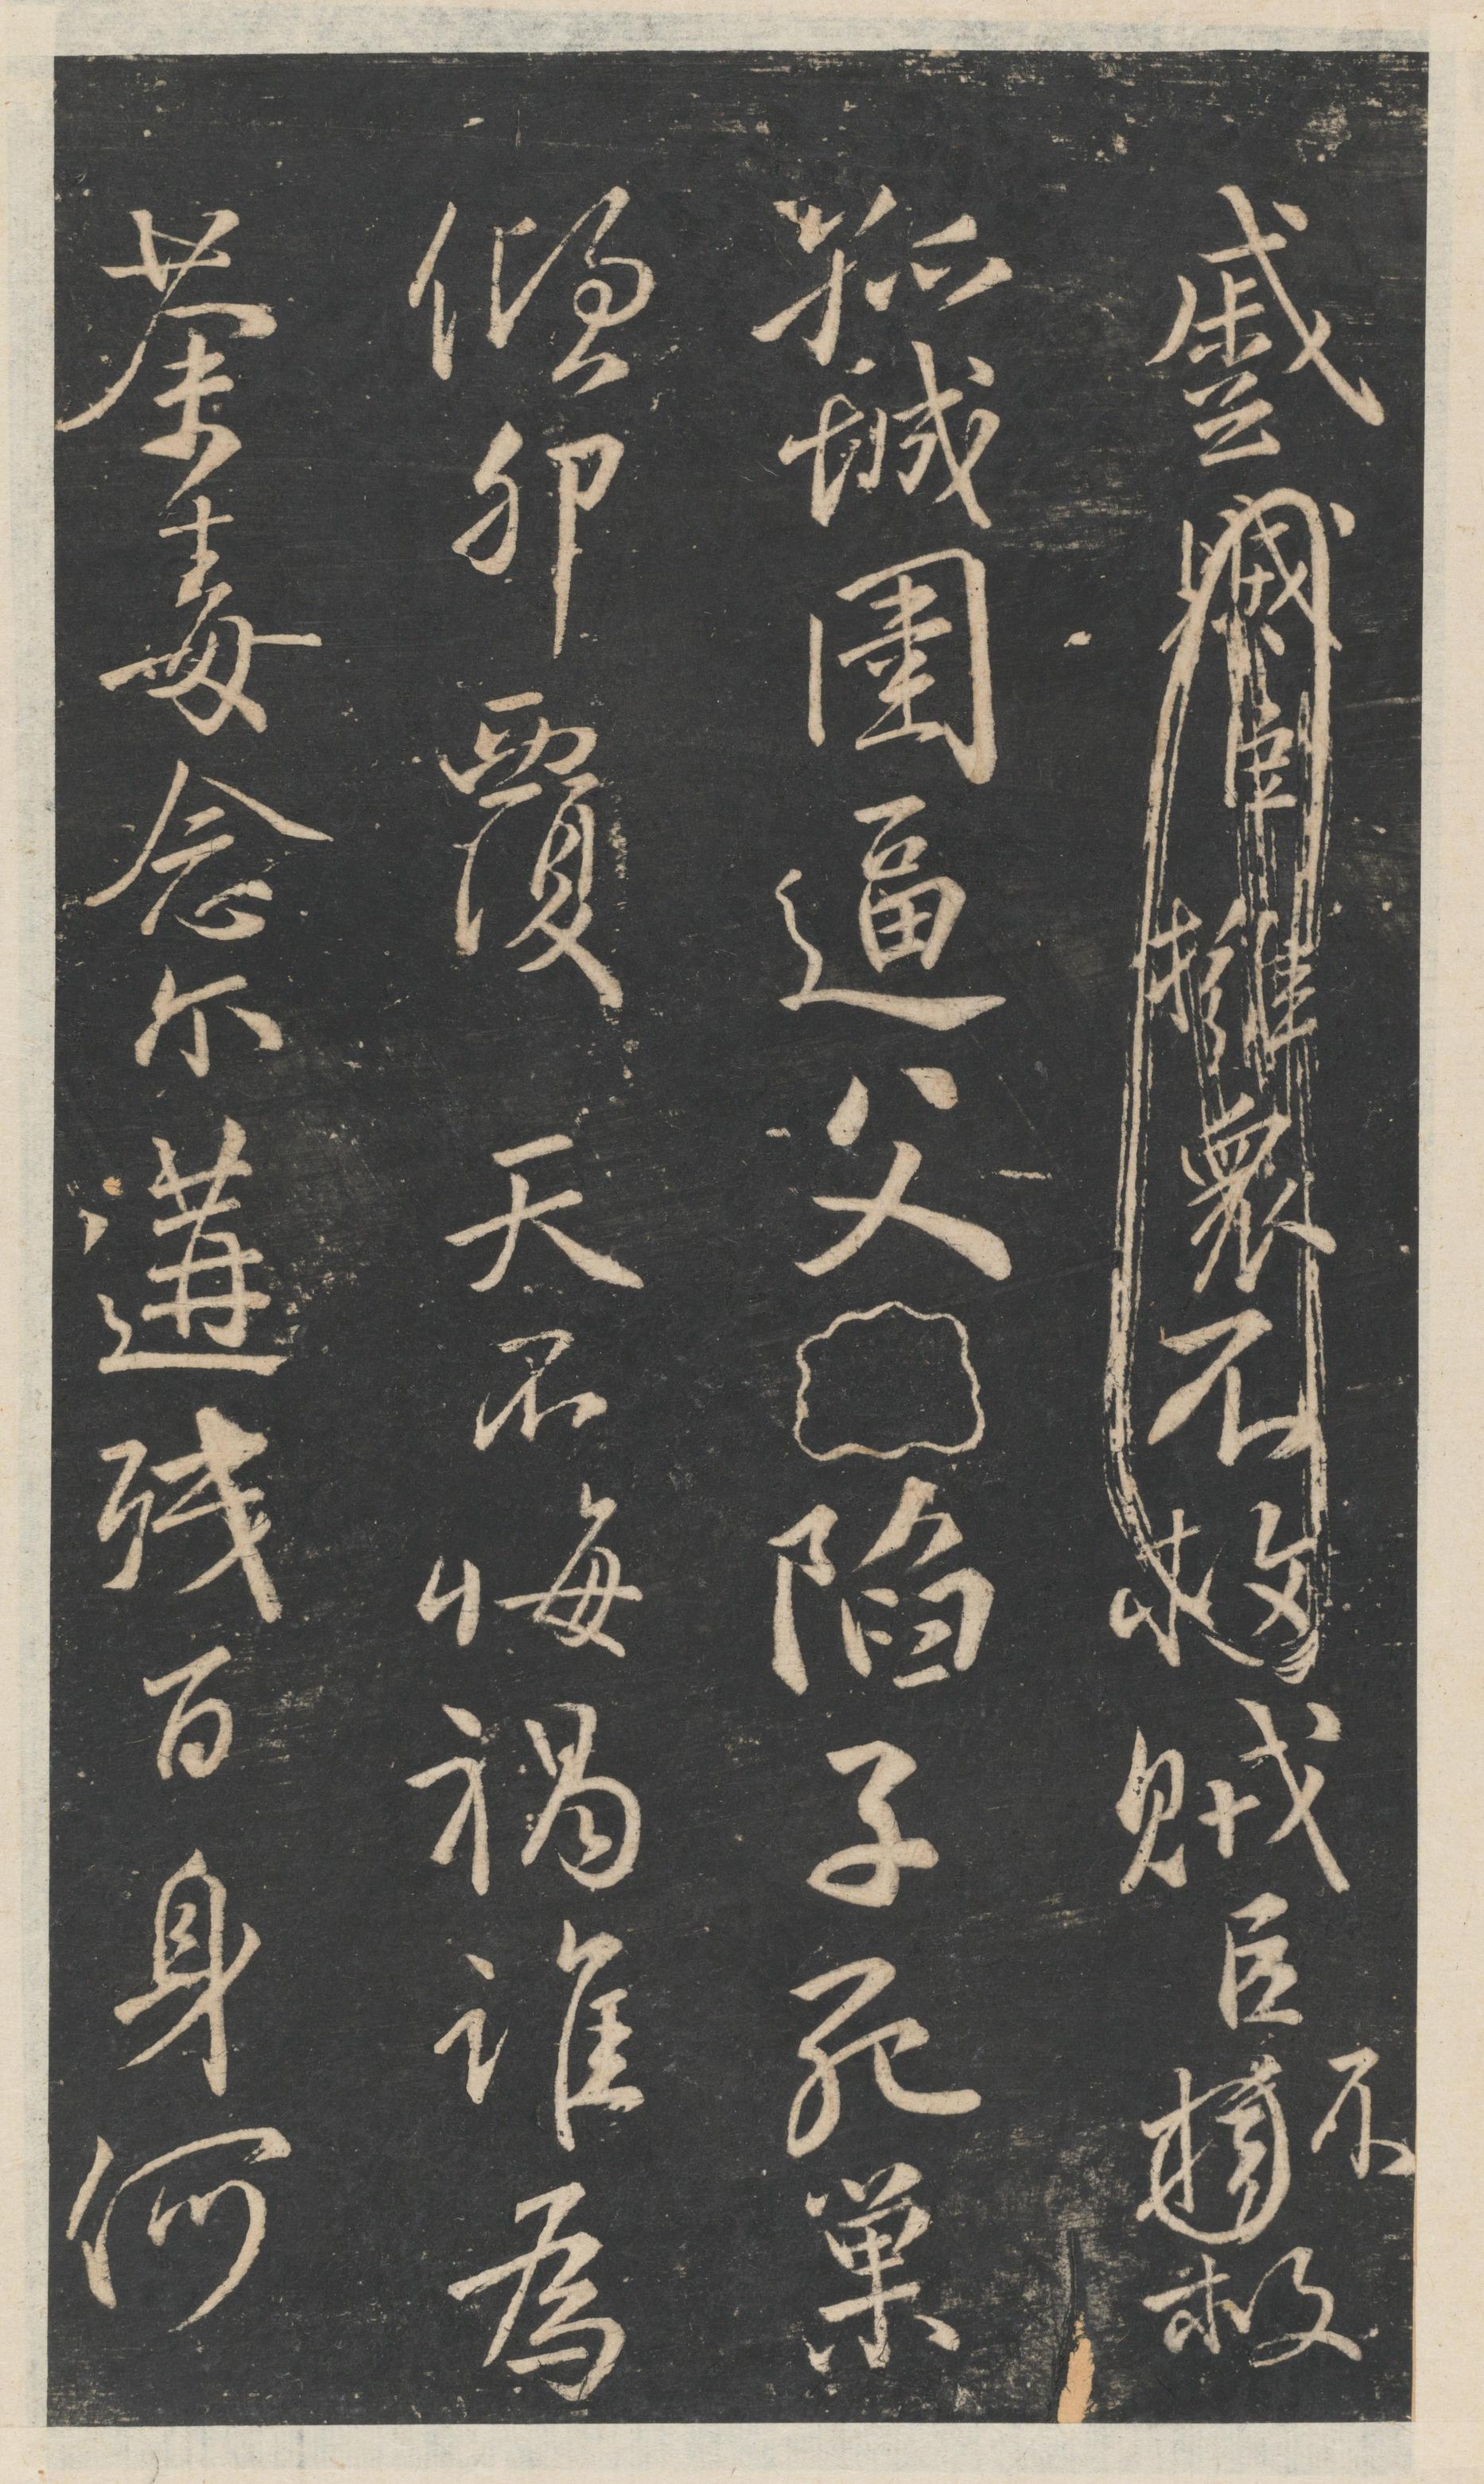 蹙賊臣擁衆不救賊臣不擁救
孤城圍逼父陷子死巢
傾卵覆天不悔禍誰爲
荼毒念尔遘殘百身何